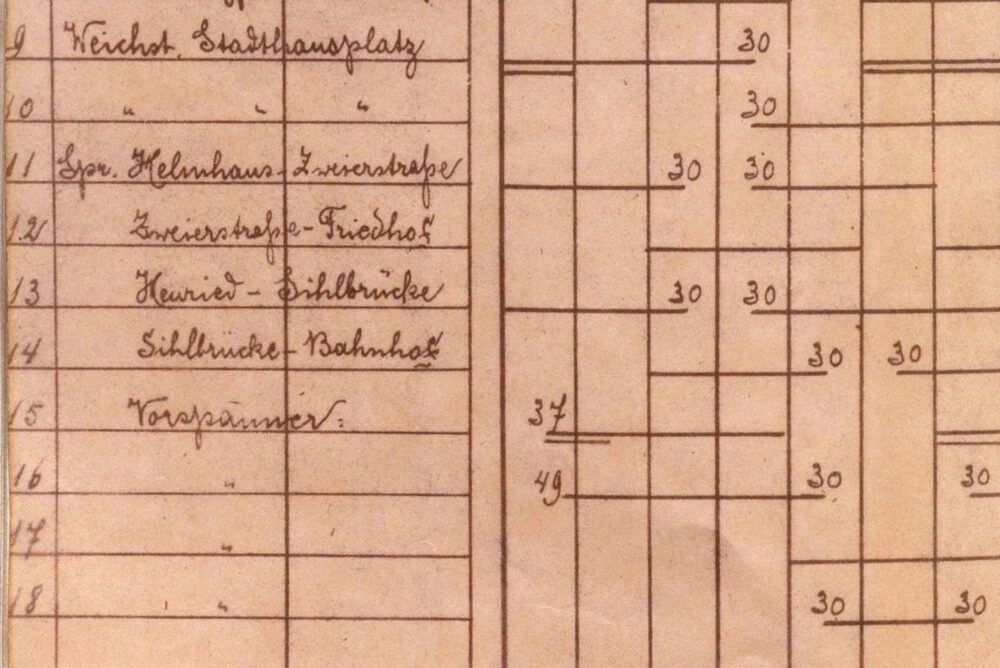 9 Weichst. Stadthausplatz 30
10 " " " 30
11 Spr. Helmhaus - Zweierstraße 30 30
12 Zweierstraße - Friedhof
13 Heuried - Sihlbrücke 30 30
14 Sihlbrücke - Bahnhof 30 30
15 Vorspänner: 37
16 " 49 30 30
17 "
18 " 30 30